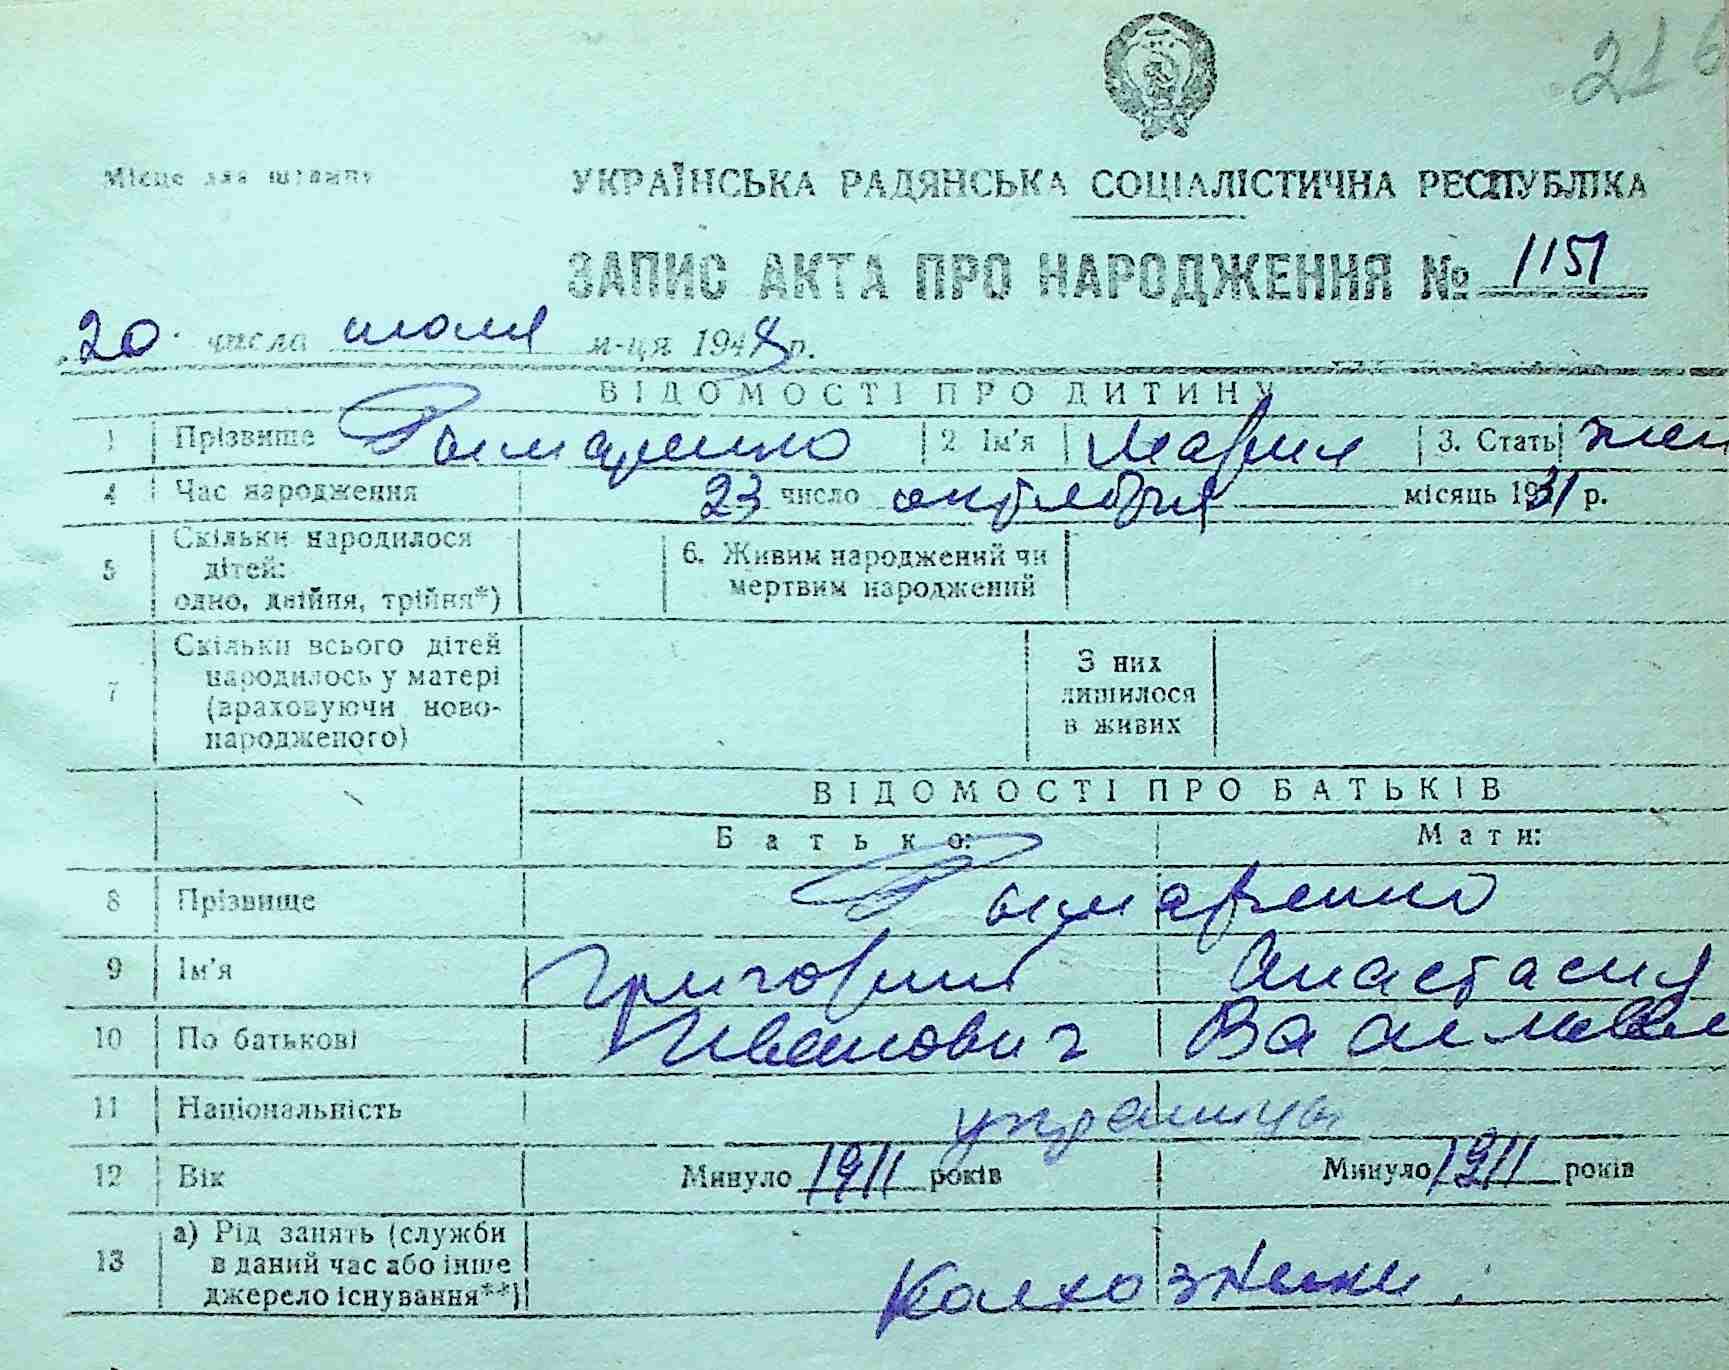 216
Місце для штампу
УКРАЇНСЬКА РАДЯНСЬКА СОЦІАЛІСТИЧНА РЕСПУБЛІКА
ЗАПИС АКТА ПРО НАРОДЖЕННЯ № 1151
20 числа июля м-ця 1948 р.
ВІДОМОСТІ ПРО ДИТИНУ
1 Прізвище Рымаренко 2 Ім'я Мария 3. Стать жен
4 Час народження 23 число октября місяць 1931 р.
5 Скільки народилося дітей: одно, двійня, трійня*) 6. Живим народжений чи мертвим народжений
7 Скільки всього дітей народилось у матері (враховуючи новонародженого) З них лишилося в живих
ВІДОМОСТІ ПРО БАТЬКІВ
Батько: Мати:
8 Прізвище Рымаренко
9 Ім'я Григорий Анастасия
10 По батькові Иванович Васильев
11 Національність украинцы
12 Вік Минуло 1911 років Минуло 1911 років
13 а) Рід занять (служби в даний час або інше джерело існування**) Колхозники.